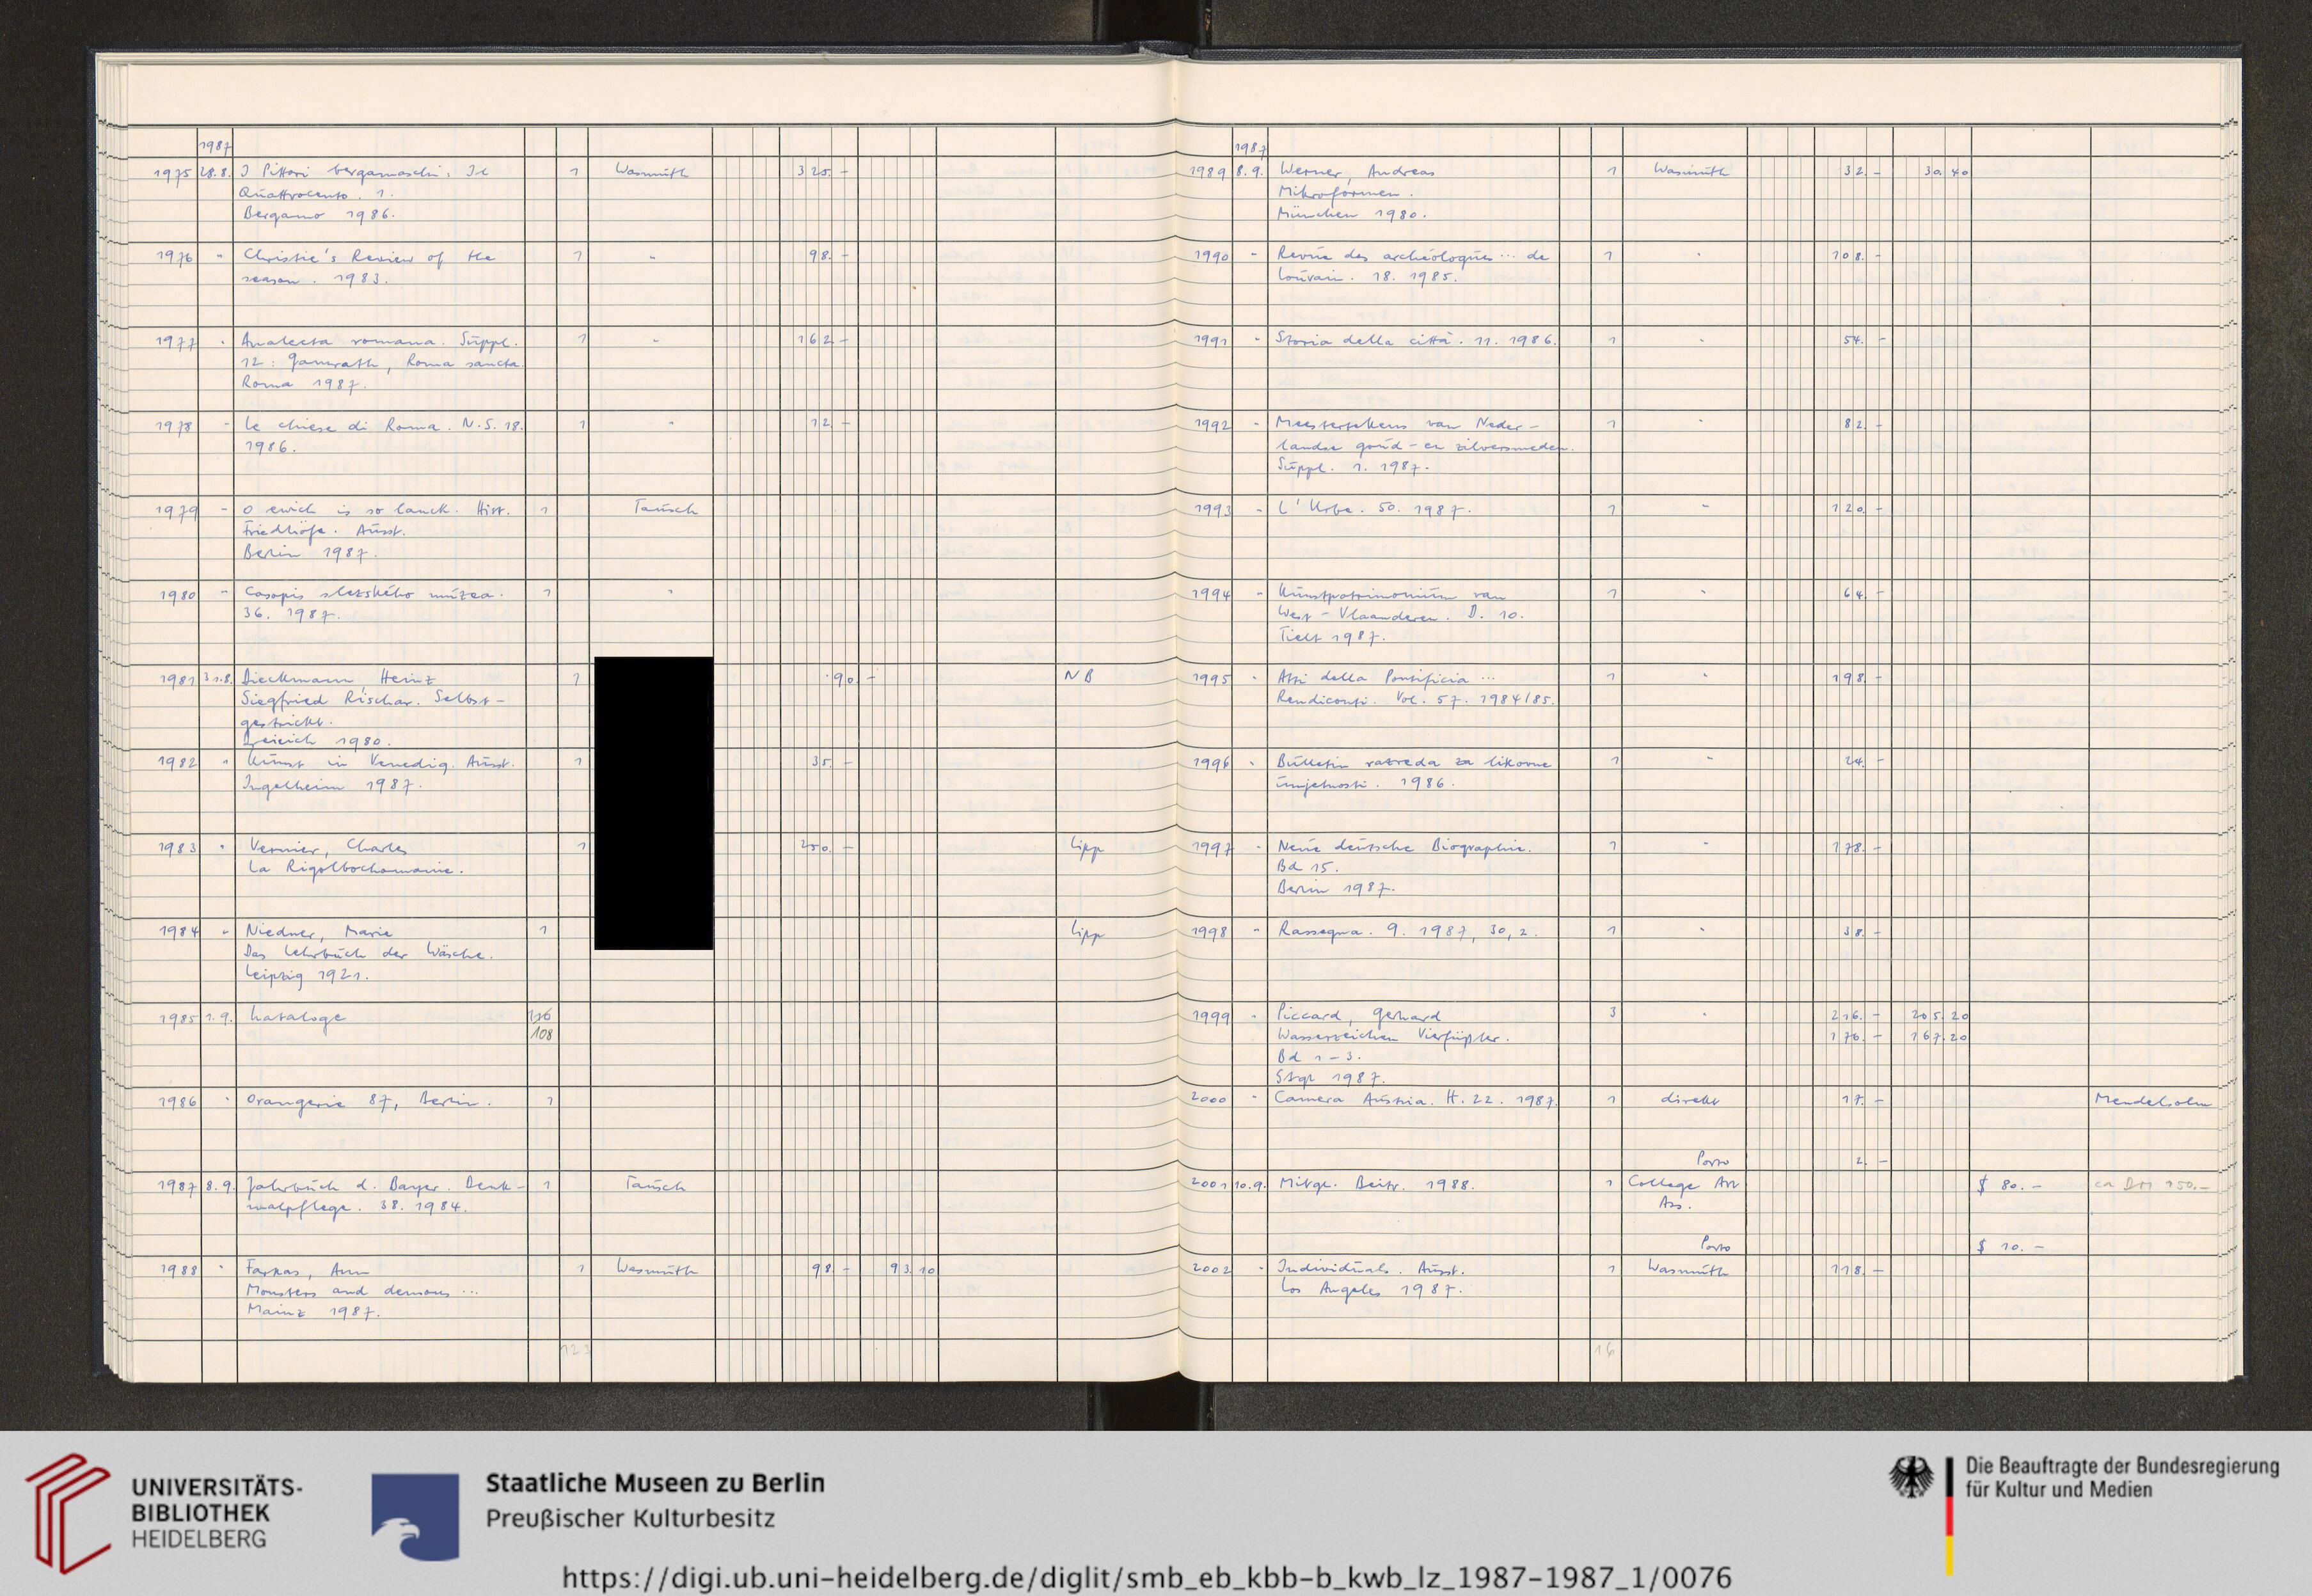 1987
1975 28.8. I Pittori bergamaschi, Il 1 Wasmuth 325.-
Quattrocento. 1.
Bergamo 1986.
1976 " Christie's Review of the 1 " 98.-
season. 1983.
1977 " Analecta romana. Suppl. 1 " 162.-
12: Gamrath, Roma sancta.
Roma 1987.
1978 " Le chiese di Roma. N.S. 18. 1 " 12.-
1986.
1979 " O ewich is so lanck. Hist. 1 Tausch
Friedhöfe. Ausst.
Berlin 1987.
1980 " Casopis slezského múzea. 1 "
36. 1987.
1981 31.8. Dieckmann, Heinz 1 90.- NB
Siegfried Rischar. Selbst-
gestrickt.
Dreieich 1980.
1982 " Kunst in Venedig. Ausst. 1 35.-
Ingelheim 1987.
1983 " Vernier, Charles 1 250.- Lipp
La Rigolbochomanie.
1984 " Niedner, Marie 1 Lipp
Das Lehrbuch der Wäsche.
Leipzig 1921.
1985 1.9. Kataloge
108
1986 " Orangerie 87, Berlin. 1
1987 8.9. Jahrbuch d. Bayer. Denk- 1 Tausch
malpflege. 38. 1984.
1988 " Farkas, Ann 1 Wasmuth 98.- 93.10
Monsters and demons ...
Mainz 1987.
123
1987
1989 8.9. Werner, Andreas 1 Wasmuth 32.- 30.40
Mikroformen.
München 1980.
1990 " Revue des archéologues ... de 1 " 108.-
Louvain. 18. 1985.
1991 " Storia della città. 11. 1986. 1 " 54.-
1992 " Meestertekens van Neder- 1 " 82.-
landse goud- en zilversmeden.
Suppl. 1. 1987.
1993 " L'Urbe. 50. 1987. 1 " 120.-
1994 " Kunstpatrimonium van 1 " 64.-
West-Vlaanderen. D. 10.
Tielt 1987.
1995 " Atti della Pontificia ... 1 " 198.-
Rendiconti. Vol. 57. 1984/85.
1996 " Bulletin razreda za likovne 1 " 24.-
umjetnosti. 1986.
1997 " Neue deutsche Biographie. 1 " 178.-
Bd 15.
Berlin 1987.
1998 " Rassegna. 9. 1987, 30,2. 1 " 38.-
1999 " Piccard, Gerhard 3 " 216.- 205.20
Wasserzeichen Vierfüßler. 176.- 167.20
Bd 1-3.
Stgt 1987.
2000 " Camera Austria. H. 22. 1987. 1 direkt 17.- Mendelsohn
Porto 2.-
2001 10.9. Mitgl. Beitr. 1988. 1 College Art $ 80.- ca DM 150.-
Ass.
Porto $ 10.-
2002 " Individuals. Ausst. 1 Wasmuth 118.-
Los Angeles 1987.
16
UNIVERSITÄTS-
BIBLIOTHEK
HEIDELBERG
Staatliche Museen zu Berlin
Preußischer Kulturbesitz
Die Beauftragte der Bundesregierung
für Kultur und Medien
https://digi.ub.uni-heidelberg.de/diglit/smb_eb_kbb-b_kwb_lz_1987-1987_1/0076